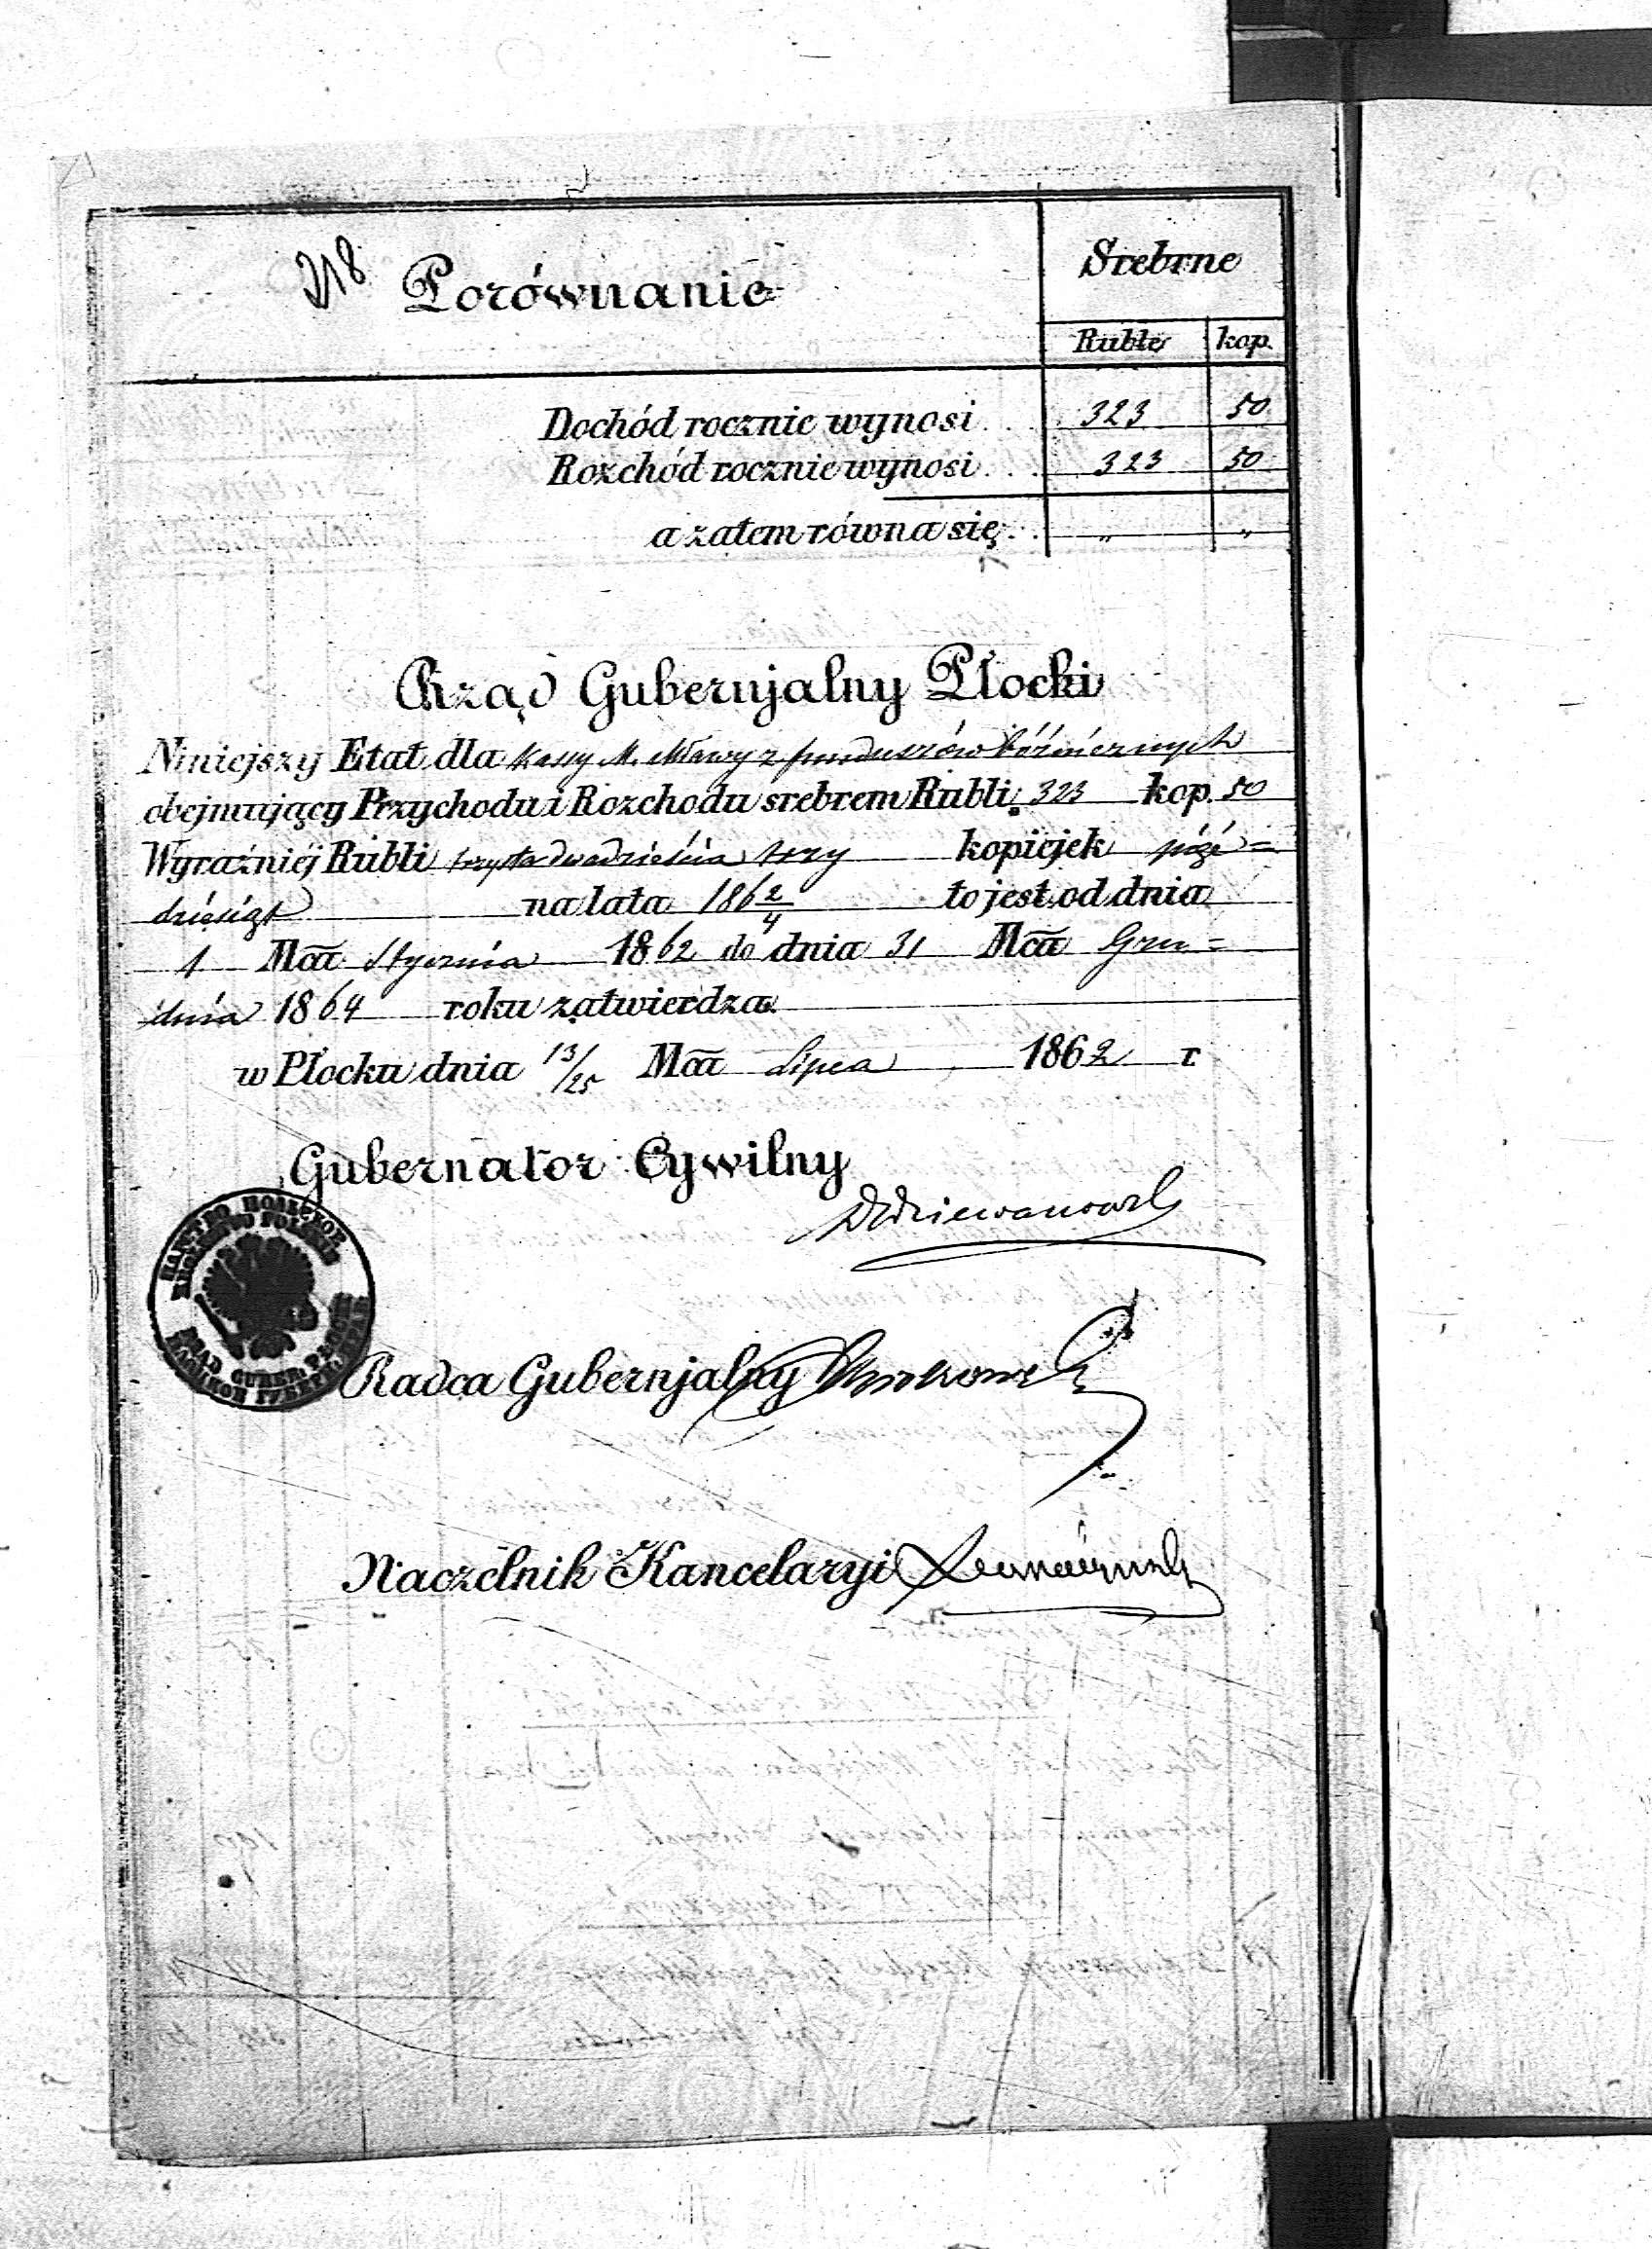 218
Porównanie
Srebrne
Ruble kop.
Dochód rocznie wynosi . . 323 50
Rozchód rocznie wynosi . . 323 50
a zatem równa się . . „ „
Rząd Gubernjalny Płocki
Niniejszy Etat dla Kassy M. Mławy z funduszów bóźnicznych
obejmujący Przychodu i Rozchodu srebrem Rubli 323 kop. 50
Wyraźniéj Rubli trzysta dwadzieścia trzy kopiejek pięć=
dziesiąt na lata 1862/4 to jest od dnia
1 Mca Stycznia 1862 do dnia 31 Mca Gru=
dnia 1864 roku zatwierdza.
w Płocku dnia 13/25 Mca Lipca 1862 r.
Gubernator Cywilny
Radca Gubernjalny
Naczelnik Kancelaryi
RZĄD GUBER: PŁOCKI